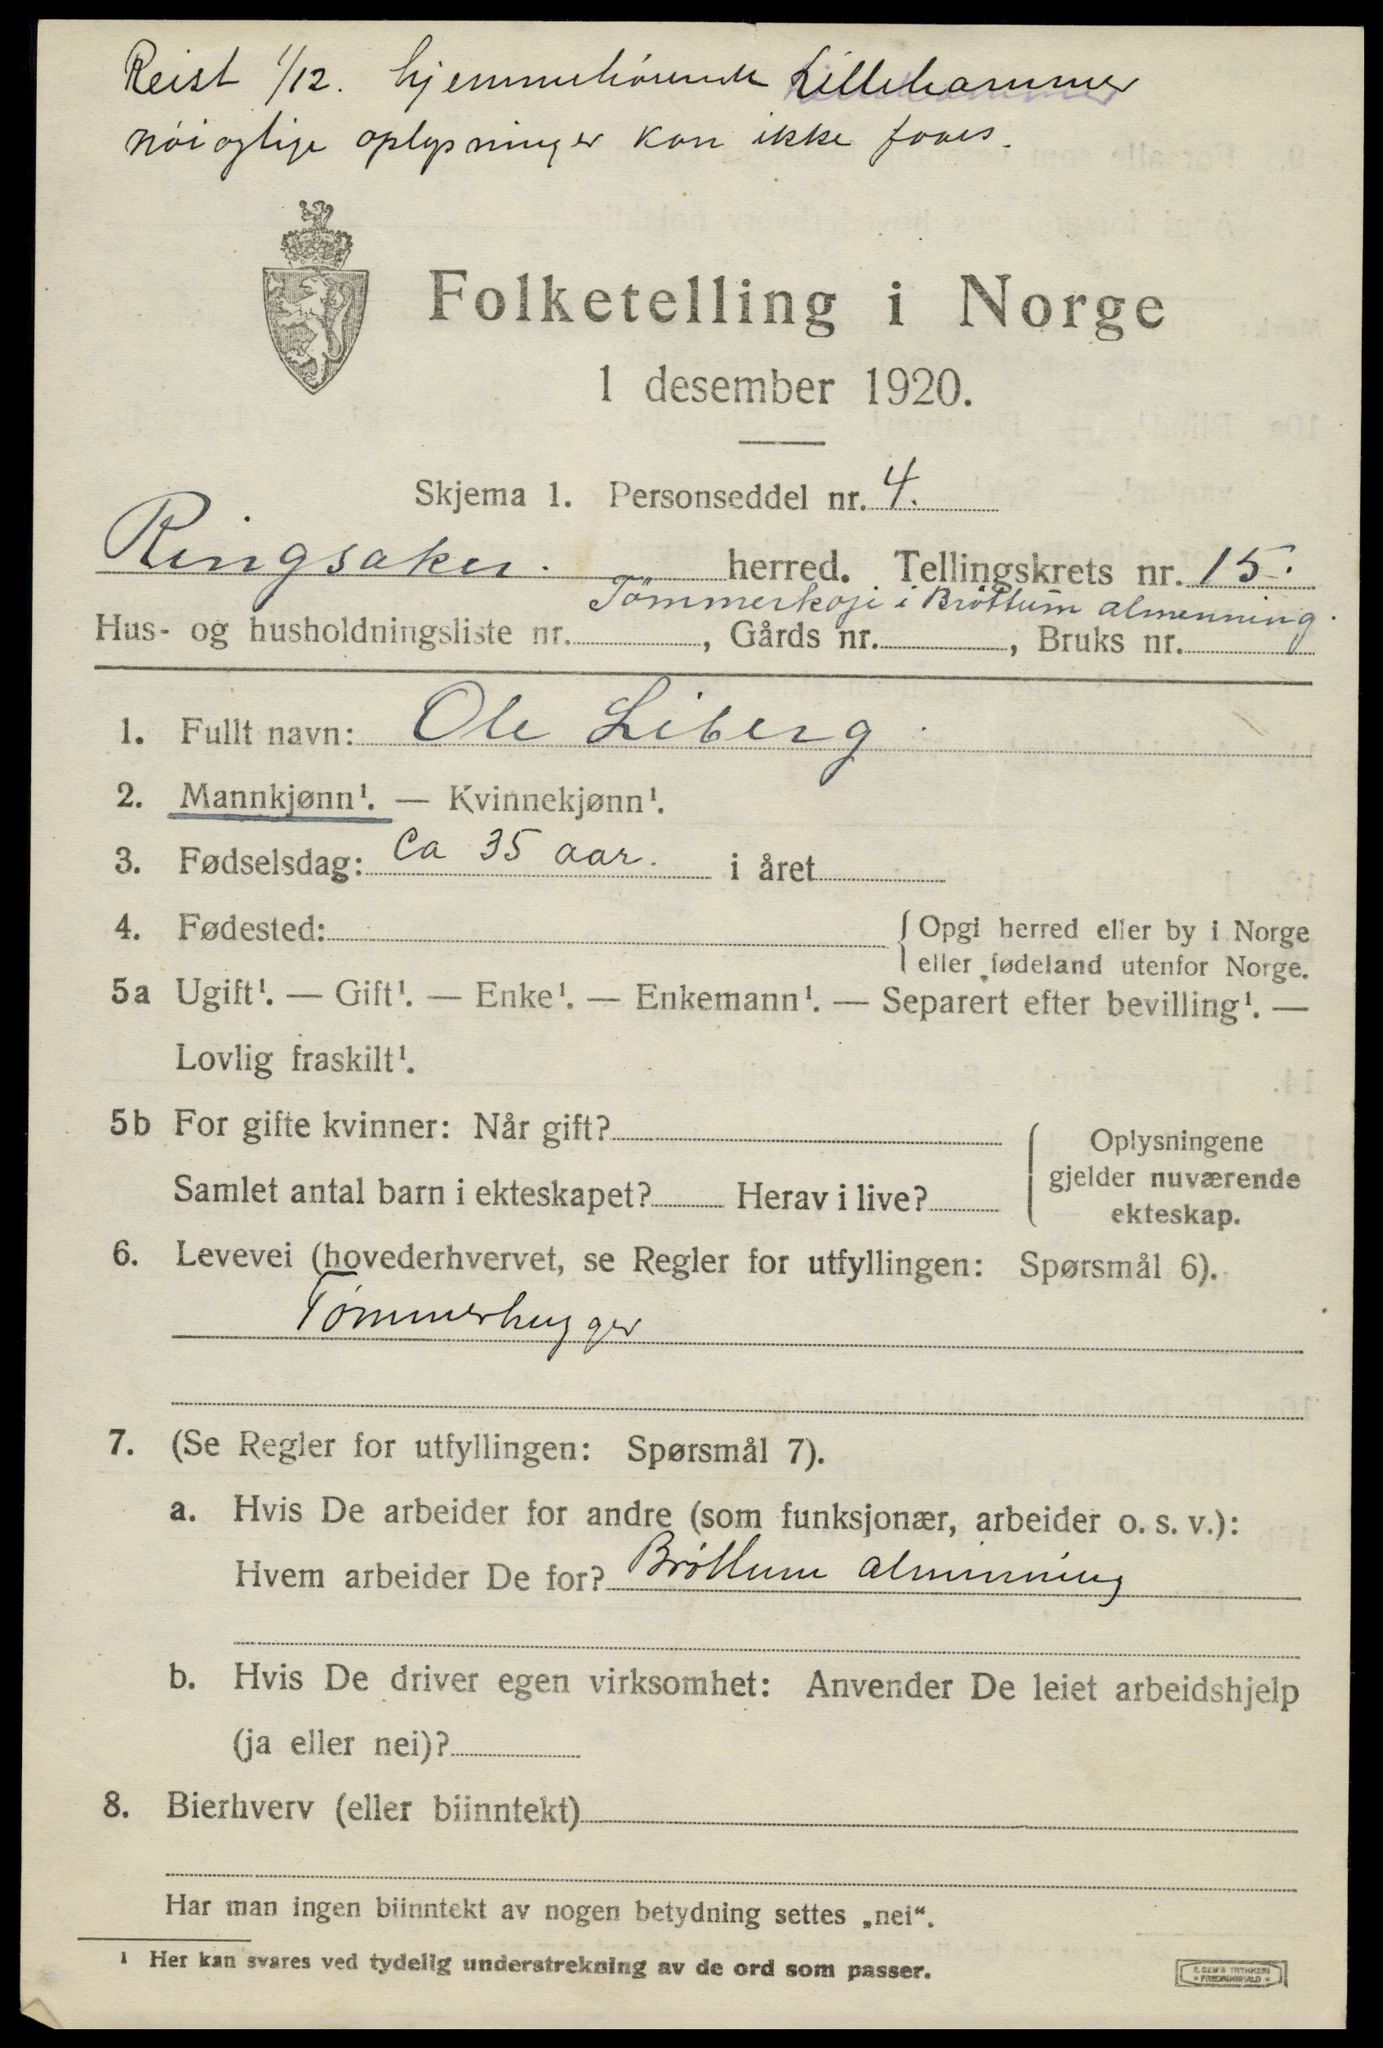 Reist 1/12. hjemmehörende Lillehammer
nöiaglige oplysninger kan ikke faaes.
Folketelling i Norge
1 desember 1920.
Skjema 1. Personseddel nr. 4.
Ringsaker. herred. Tellingskrets nr. 15.
Tömmerkoje i Bröttum almenning.
Hus- og husholdningsliste nr. , Gårds nr. , Bruks nr.
1. Fullt navn: Ole Liberg.
2. Mannkjønn¹. — Kvinnekjønn¹.
3. Fødselsdag: Ca 35 aar. i året
4. Fødested: { Opgi herred eller by i Norge
eller fødeland utenfor Norge.
5a Ugift¹. — Gift¹. — Enke¹. — Enkemann¹. — Separert efter bevilling¹. —
Lovlig fraskilt¹.
5b For gifte kvinner: Når gift?
Samlet antal barn i ekteskapet? Herav i live?
Oplysningene
gjelder nuværende
ekteskap.
6. Levevei (hovederhvervet, se Regler for utfyllingen: Spørsmål 6).
Tømmerhugger
7. (Se Regler for utfyllingen: Spørsmål 7).
a. Hvis De arbeider for andre (som funksjonær, arbeider o. s. v.):
Hvem arbeider De for? Brøttum almenning
b. Hvis De driver egen virksomhet: Anvender De leiet arbeidshjelp
(ja eller nei)?
8. Bierhverv (eller biinntekt)
Har man ingen biinntekt av nogen betydning settes „nei“.
¹ Her kan svares ved tydelig understrekning av de ord som passer.
E. SEM'S TRYKKERI
FREDRIKSHALD